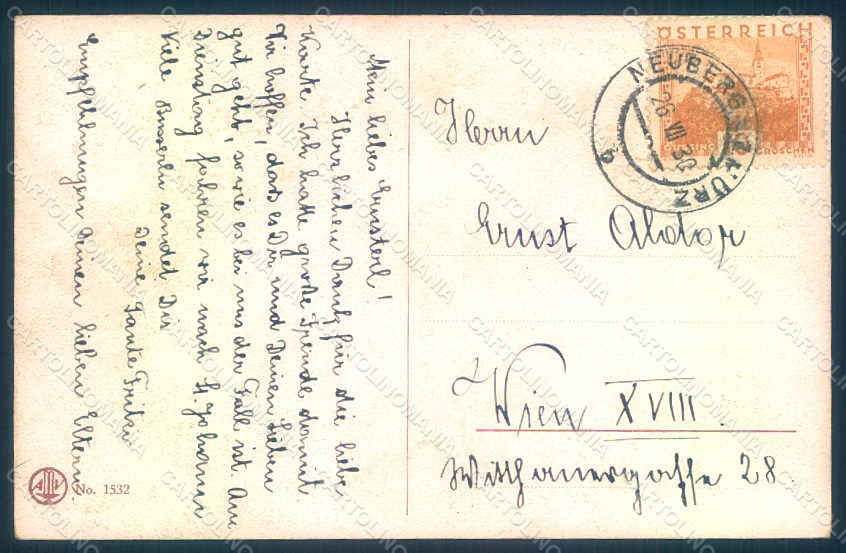 Mein liebes Ernsterl!
Herzlichen Dank für die liebe
Karte. Ich hatte große Freude damit.
Wir hoffen, dass es Dir und Deinen lieben
gut geht, so wie es bei uns der Fall ist. Am
Dienstag fahren wir nach St. Johann
Viele Busserln sendet Dir
Deine Tante Fritzi.
Empfehlungen Deinen lieben Eltern.
No. 1532
ÖSTERREICH
GÜSSING
GROSCHEN
NEUBERG A.D. MÜRZ
26 VII 30
b
Herrn
Ernst
Wien XVIII.
28
CARTOLINOMANIA